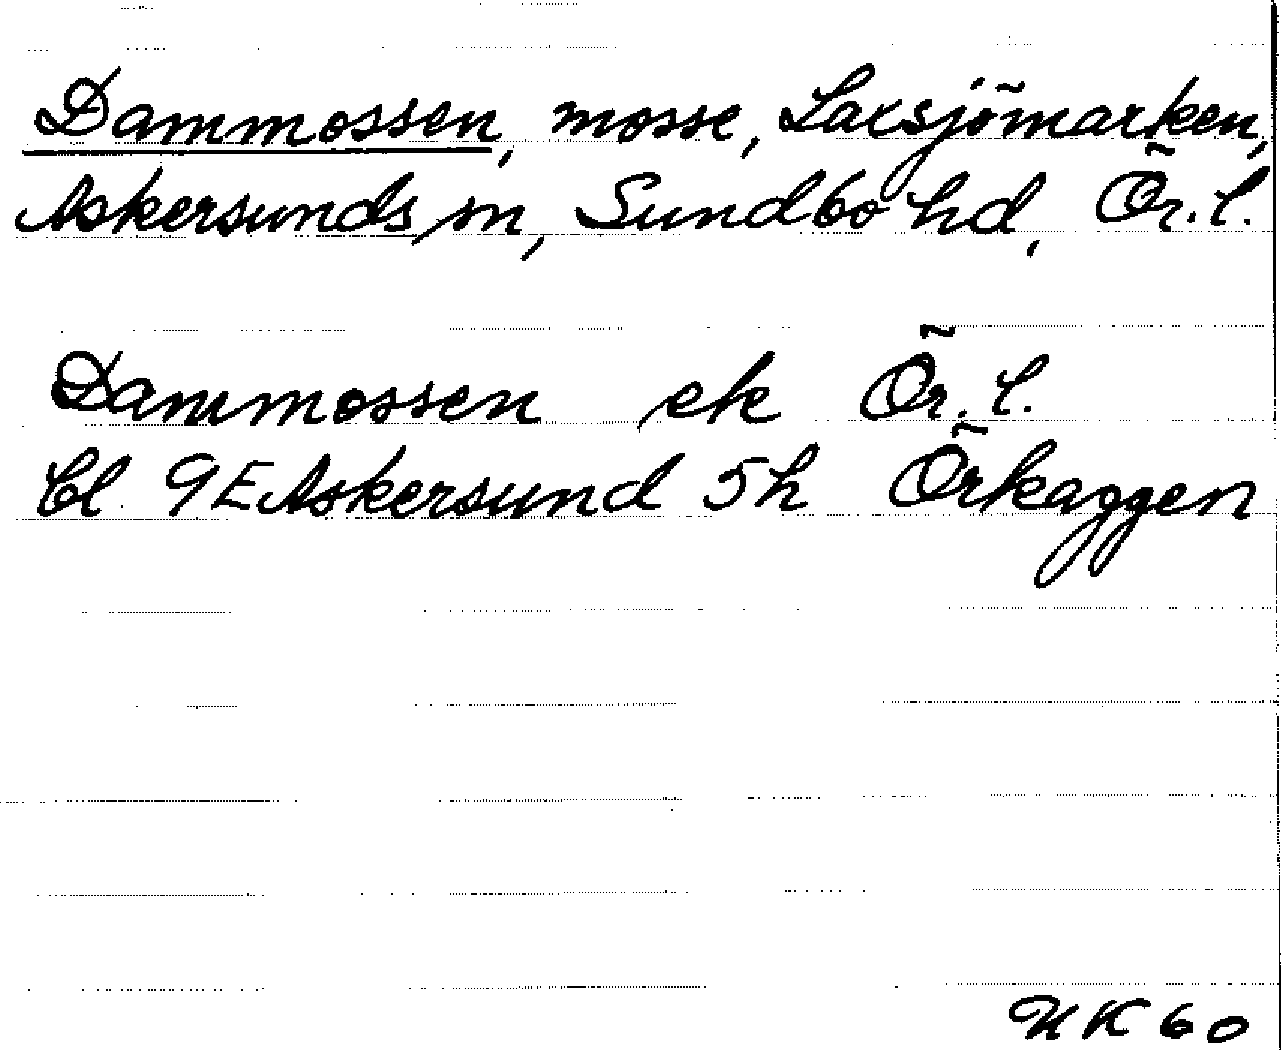 Dammossen, mosse, Laxsjömarken,
Askersunds sn, Sundbo hd, Ör. l.
Dammossen ek Ör. l.
Bl. 9E Askersund 5h Örkaggen
UK 60